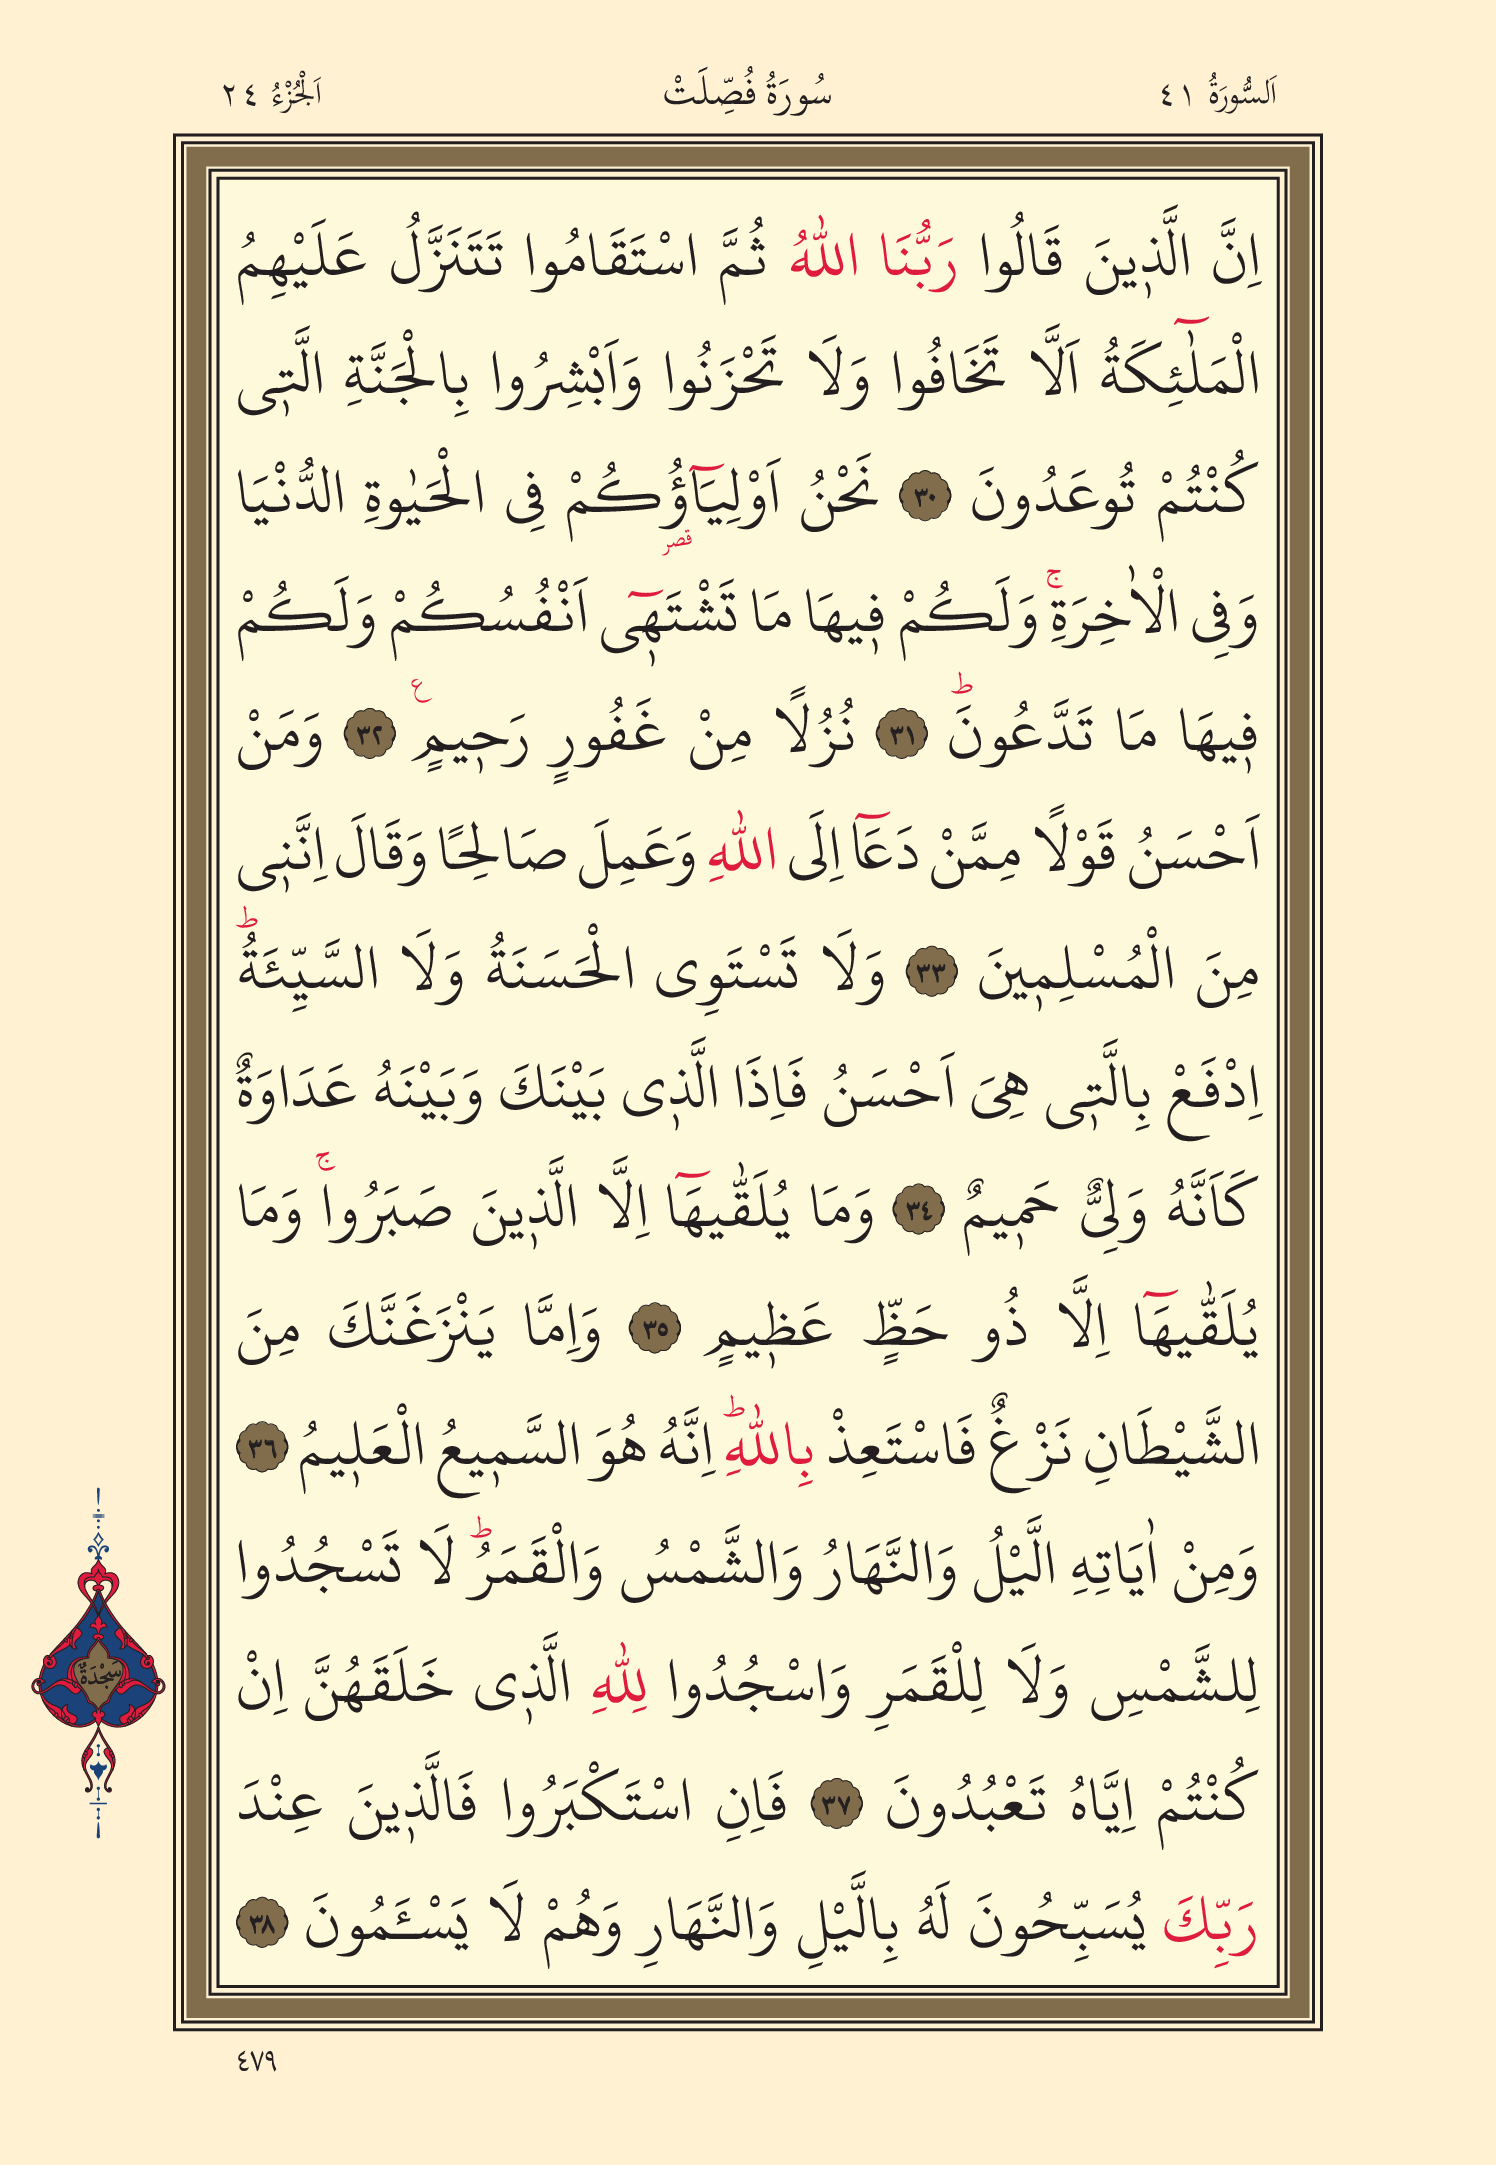 اَلسُّورَةُ ٤١
سُورَةُ فُصِّلَتْ
اَلْجُزْءُ ٢٤
اِنَّ الَّذ۪ينَ قَالُوا رَبُّنَا اللّٰهُ ثُمَّ اسْتَقَامُوا تَتَنَزَّلُ عَلَيْهِمُ
الْمَلٰٓئِكَةُ اَلَّا تَخَافُوا وَلَا تَحْزَنُوا وَاَبْشِرُوا بِالْجَنَّةِ الَّت۪ى
كُنْتُمْ تُوعَدُونَ ﴿٣٠﴾ نَحْنُ اَوْلِيَٓاؤُ۬كُمْ فِى الْحَيٰوةِ الدُّنْيَا
قصر
وَفِى الْاٰخِرَةِۚ وَلَكُمْ ف۪يهَا مَا تَشْتَه۪ٓى اَنْفُسُكُمْ وَلَكُمْ
ف۪يهَا مَا تَدَّعُونَۜ ط ﴿٣١﴾ نُزُلًا مِنْ غَفُورٍ رَح۪يمٍ ع ﴿٣٢﴾ وَمَنْ
اَحْسَنُ قَوْلًا مِمَّنْ دَعَٓا اِلَى اللّٰهِ وَعَمِلَ صَالِحًا وَقَالَ اِنَّن۪ى
مِنَ الْمُسْلِم۪ينَ ﴿٣٣﴾ وَلَا تَسْتَوِى الْحَسَنَةُ وَلَا السَّيِّئَةُ ط
اِدْفَعْ بِالَّت۪ى هِىَ اَحْسَنُ فَاِذَا الَّذ۪ى بَيْنَكَ وَبَيْنَهُ عَدَاوَةٌ
كَاَنَّهُ وَلِىٌّ حَم۪يمٌ ﴿٣٤﴾ وَمَا يُلَقّٰيهَٓا اِلَّا الَّذ۪ينَ صَبَرُواۚ وَمَا
يُلَقّٰيهَٓا اِلَّا ذُو حَظٍّ عَظ۪يمٍ ﴿٣٥﴾ وَاِمَّا يَنْزَغَنَّكَ مِنَ
الشَّيْطَانِ نَزْغٌ فَاسْتَعِذْ بِاللّٰهِ ط اِنَّهُ هُوَ السَّم۪يعُ الْعَل۪يمُ ﴿٣٦﴾
وَمِنْ اٰيَاتِهِ الَّيْلُ وَالنَّهَارُ وَالشَّمْسُ وَالْقَمَرُ ط لَا تَسْجُدُوا
لِلشَّمْسِ وَلَا لِلْقَمَرِ وَاسْجُدُوا لِلّٰهِ الَّذ۪ى خَلَقَهُنَّ اِنْ
كُنْتُمْ اِيَّاهُ تَعْبُدُونَ ﴿٣٧﴾ فَاِنِ اسْتَكْبَرُوا فَالَّذ۪ينَ عِنْدَ
رَبِّكَ يُسَبِّحُونَ لَهُ بِالَّيْلِ وَالنَّهَارِ وَهُمْ لَا يَسْـَٔمُونَ ﴿٣٨﴾
سَجْدَةٌ
٤٧٩